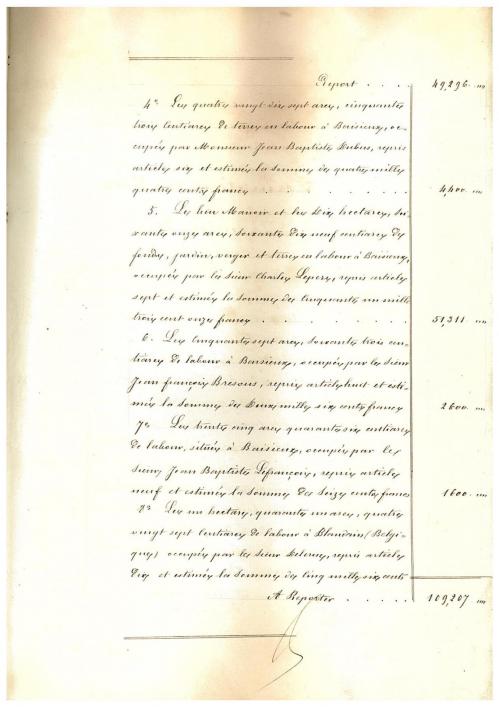 Report . . . . 49,296 "
4° Les quatre vingt dix sept ares, cinquante
trois centiares de terre en labour à Baisieux, oc-
cupés par Monsieur Jean Baptiste Dubus, repris
article six et estimés la somme de quatre mille
quatre cents francs . . . . . . 4,400 "
5. Le lieu Manoir et les dix hectares, soi-
xante onze ares, soixante dix neuf centiares de
fonds, jardin, verger et terre en labour à Baisieux,
occupés par le sieur Charles Lepers, repris article
sept et estimés la somme de cinquante un mille
trois cent onze francs . . . . . . 51,311 "
6. Les cinquante sept ares, soixante trois cen-
tiares de labour à Baisieux, occupés par le sieur
Jean françois Bresous, repris article huit et esti-
més la somme de deux mille six cents francs 2600 "
7° Les trente cinq ares quarante six centiares
de labour, situés à Baisieux, occupés par le
sieur Jean Baptiste Lefrançois, repris article
neuf et estimés la somme de seize cents francs 1600 "
8° Les un hectare, quarante un ares, quatre
vingt sept centiares de labour à Blandain (Belgi-
que) occupés par le sieur repris article
dix et estimés la somme de cinq mille six cents
A Reporter . . . . . 109,207 "